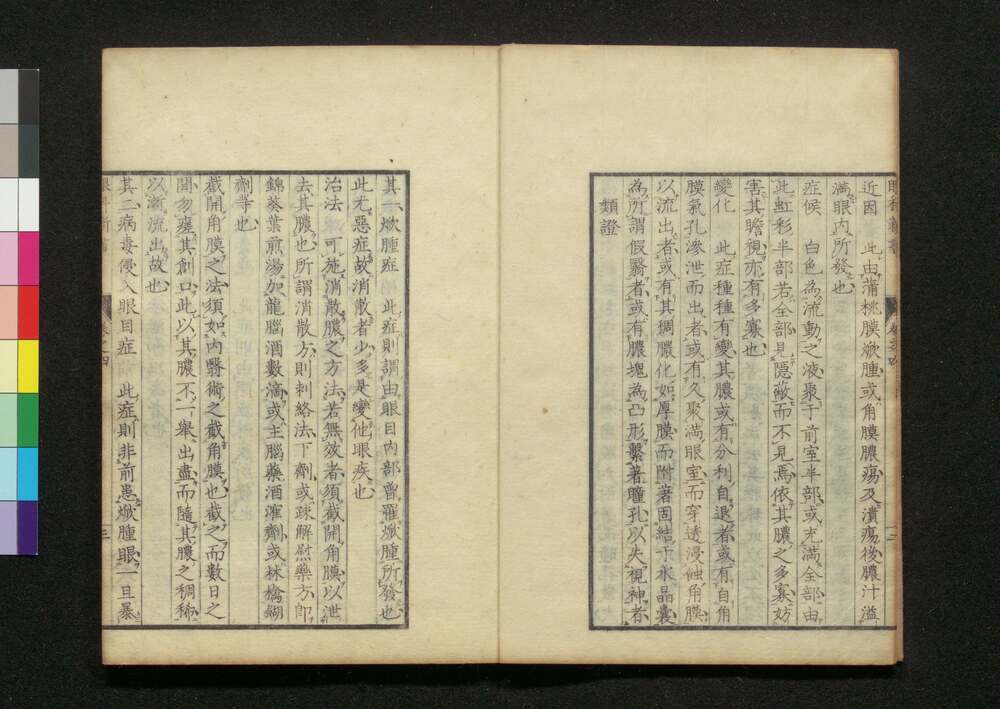 近因 此由蒲桃膜焮腫或角膜膿瘍及潰瘍後膿汁溢
滿眼内所發也
症候 白色為流動之液聚于前室半部或充滿全部由
此虹彩半部若全部見隱蔽而不見焉依其膿之多寡妨
害其瞻視亦有多寡也
變化 此症種種有變其膿或有分利自退者或有自角
膜氣孔滲泄而出者或有久聚滿眼室而穿透浸蝕角膜
以流出者或有其稠膿化如厚膜而附著固結于水晶囊
為所謂假翳者或有膿塊為凸形繫著瞳孔以失視神者
類證
其一焮腫症 此症則謂由眼目内部曾罹焮腫所發也
此尤惡症故消散者少多是變他眼疾也
治法 可施消散膿之方法若無效者須截開角膜以泄
去其膿也所謂消散方則刺絡法下劑或疎解慰藥方即
錦葵葉煎湯加龍腦酒數滴或主腦藥酒渾劑或林檎餬
劑等也
截開角膜之法須如内翳術之截角膜也截之而數日之
間勿癒其創口此以其膿不一舉出盡而隨其膿之稠稀
以漸流出故也
其二病毒侵入眼目症 此症則非前患焮腫眼一旦暴
卷之四
三